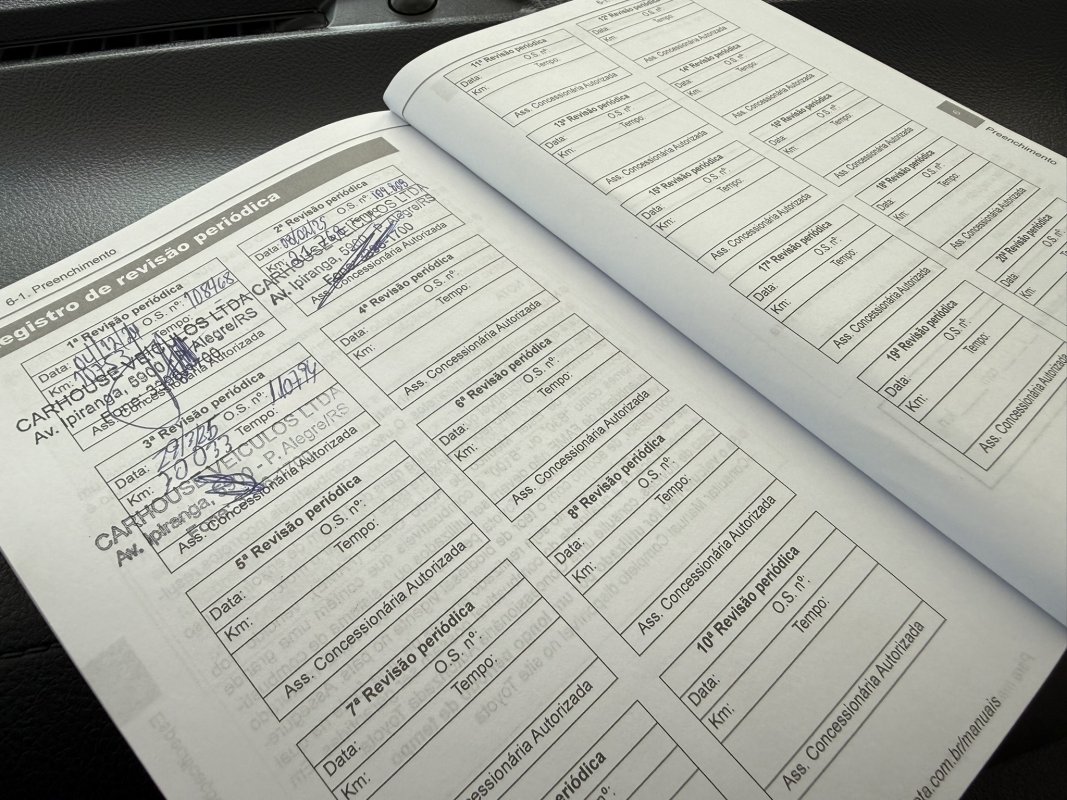 6-1. Preenchimento
Registro de revisão periódica
1ª Revisão periódica
Data: 04/12/24 O.S. nº: 108468
Km: Tempo:
CARHOUSE VEICULOS LTDA
Av. Ipiranga, 5900 - P. Alegre/RS
Ass. Concessionária Autorizada
2ª Revisão periódica
Data: O.S. nº: 109.809
Km: Tempo:
CARHOUSE VEICULOS LTDA
Av. Ipiranga, 5900 - P. Alegre/RS
Ass. Concessionária Autorizada
3ª Revisão periódica
Data: O.S. nº: 110794
Km: 30033 Tempo:
CARHOUSE VEICULOS LTDA
Av. Ipiranga, 5900 - P. Alegre/RS
Ass. Concessionária Autorizada
4ª Revisão periódica
Data: O.S. nº:
Km: Tempo:
Ass. Concessionária Autorizada
5ª Revisão periódica
Data: O.S. nº:
Km: Tempo:
Ass. Concessionária Autorizada
6ª Revisão periódica
Data: O.S. nº:
Km: Tempo:
Ass. Concessionária Autorizada
7ª Revisão periódica
Data: O.S. nº:
Km: Tempo:
Ass. Concessionária Autorizada
8ª Revisão periódica
Data: O.S. nº:
Km: Tempo:
Ass. Concessionária Autorizada
periódica
10ª Revisão periódica
Data: O.S. nº:
Km: Tempo:
Ass. Concessionária Autorizada
ta.com.br/manuais
Preenchimento
11ª Revisão periódica
Data: O.S. nº:
Km: Tempo:
Ass. Concessionária Autorizada
12ª Revisão periódica
Data: O.S. nº:
Km: Tempo:
Ass. Concessionária Autorizada
13ª Revisão periódica
Data: O.S. nº:
Km: Tempo:
Ass. Concessionária Autorizada
14ª Revisão periódica
Data: O.S. nº:
Km: Tempo:
Ass. Concessionária Autorizada
15ª Revisão periódica
Data: O.S. nº:
Km: Tempo:
Ass. Concessionária Autorizada
16ª Revisão periódica
Data: O.S. nº:
Km: Tempo:
Ass. Concessionária Autorizada
17ª Revisão periódica
Data: O.S. nº:
Km: Tempo:
Ass. Concessionária Autorizada
18ª Revisão periódica
Data: O.S. nº:
Km: Tempo:
Ass. Concessionária Autorizada
19ª Revisão periódica
Data: O.S. nº:
Km: Tempo:
Ass. Concessionária Autorizada
20ª Revisão periódica
Data: O.S. nº:
Km:
Ass. Concessionária